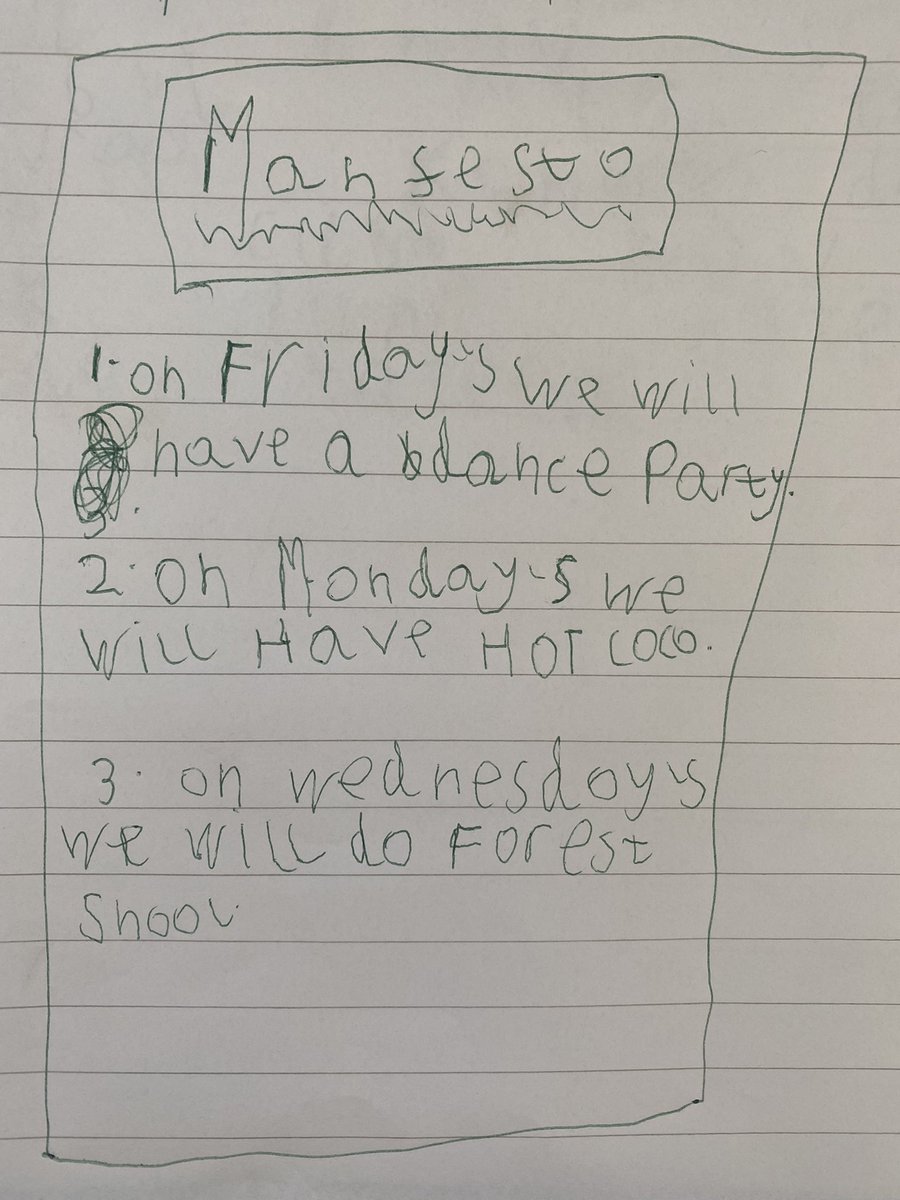 Manfesto
1. on Friday's we will
have a dance Party.
2. On Monday's we
will Have HOT COCO.
3. on wednesday's
we will do Forest
Shool